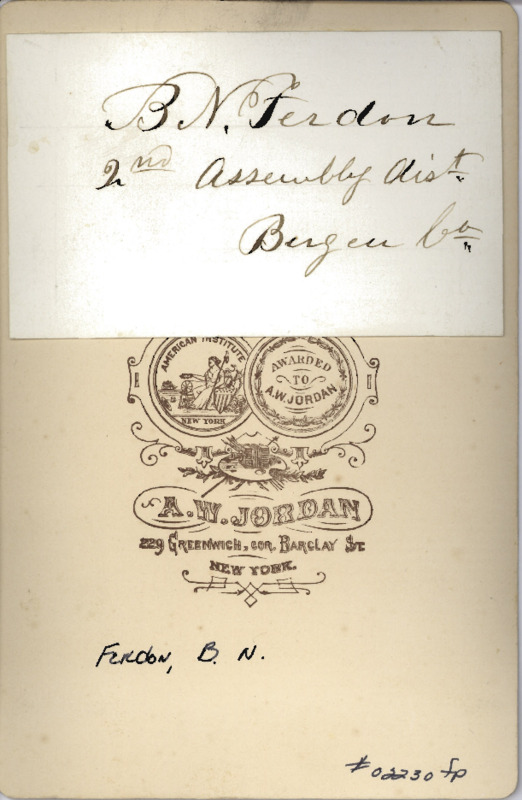 B. N. Ferdon
2nd Assembly Dist.
Bergen Co
AMERICAN INSTITUTE
NEW YORK
AWARDED
TO
A.W. JORDAN
A.W. JORDAN
229 GREENWICH, COR. BARCLAY ST.
NEW YORK.
FERDON, B. N.
# 02230 fp